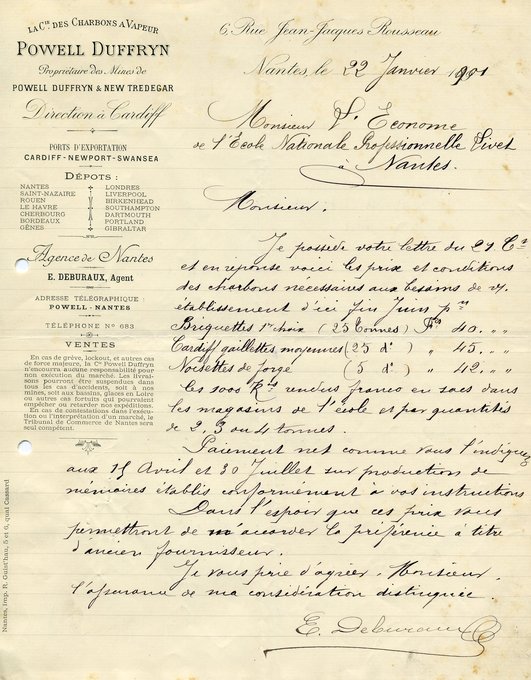 LA Cie DES CHARBONS A VAPEUR
POWELL DUFFRYN
Propriétaire des Mines de
POWELL DUFFRYN & NEW TREDEGAR
Direction à Cardiff
PORTS D'EXPORTATION
CARDIFF - NEWPORT - SWANSEA
DÉPOTS :
NANTES LONDRES
SAINT-NAZAIRE LIVERPOOL
ROUEN BIRKENHEAD
LE HAVRE SOUTHAMPTON
CHERBOURG DARTMOUTH
BORDEAUX PORTLAND
GÊNES GIBRALTAR
Agence de Nantes
E. DEBURAUX, Agent
ADRESSE TÉLÉGRAPHIQUE :
POWELL - NANTES
TÉLÉPHONE No 683
VENTES
En cas de grève, lockout, et autres cas
de force majeure, la Cie Powell Duffryn
n'encourra aucune responsabilité pour
non exécution du marché. Les livrai-
sons pourront être suspendues dans
tous les cas d'accidents, soit à nos
mines, soit aux bassins, glaces en Loire
ou autres cas fortuits qui pourraient
empêcher ou retarder nos expéditions.
En cas de contestations dans l'exécu-
tion ou l'interprétation d'un marché, le
Tribunal de Commerce de Nantes sera
seul compétent.
Nantes, Imp. R. Guist'hau, 5 et 6, quai Cassard
6, Rue Jean-Jacques Rousseau
Nantes, le 22 Janvier 1901
Monsieur l'Econome
de l'École Nationale Professionnelle Livet
à Nantes.
Monsieur.
Je possède votre lettre du 21 Ct
et en réponse voici les prix et conditions
des charbons necessaires aux besoins de v/.
établissement d'ici fin Juin pn
Briquettes 1er choix (25 tonnes) Frs 40. " "
Cardiff gaillettes moyennes (25 d°) " 45. " "
Noisettes de forge (5 d°) " 42. " "
les 1000 Ks rendus franco en sacs dans
les magasins de l'école et par quantités
de 2, 3 ou 4 tonnes.
Paiement net comme vous l'indiquez
aux 15 Avril et 30 Juillet sur production de
mémoires établis conformement à vos instructions
Dans l'espoir que ces prix vous
permettront de m'accorder la préférence à titre
d'ancien fournisseur.
Je vous prie d'agréer. Monsieur.
l'assurance de ma considération distinguée
E. Deburaux